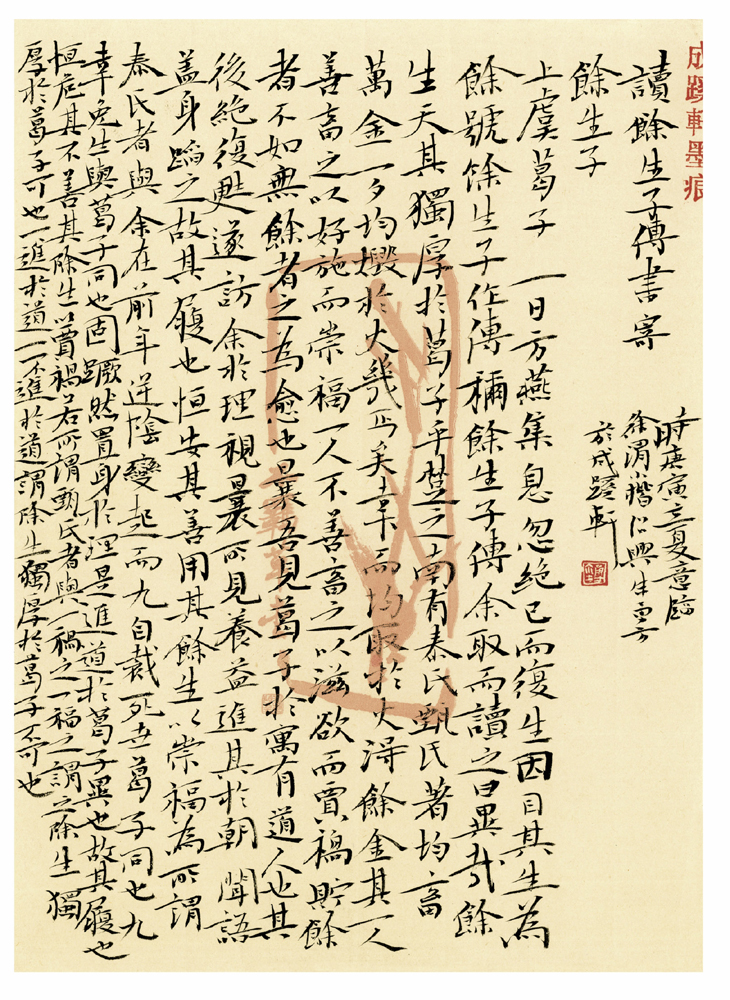 成蹊軒墨痕
讀餘生子傳書寄
餘生子
時庚寅立夏意臨
徐渭小楷紹興生
於成蹊軒
上虞葛子一日方燕集息忽絕已而復生因目其生為
餘號餘生子作傳稱餘生子傳余取而讀之曰異哉餘
生天其獨厚於葛子乎楚之南有秦氏甄氏者均畜
萬金一夕均燬於火幾丐矣幸而均取於火得餘金其一人
善畜之以好施而崇福一人不善畜之以滋欲而賈禍貯餘
者不如無餘者之為愈也曩吾見葛子於寓有道人也其
後絕復甦遂訪余於理視曩所見養益進其於朝聞語
蓋身蹈之故其履也恒安其善用其餘生以崇福為所謂
秦氏者與余在前年逆陰變起而九自裁死去葛子同也九
幸免生與葛子同也固蹶然置身於理是進道於葛子異也故其履也
恒危其不善其餘生以賈禍若所謂甄氏者與一禍之一福之謂之餘生獨
厚於葛子可也一進於道一不進於道謂餘生獨厚於葛子不可也